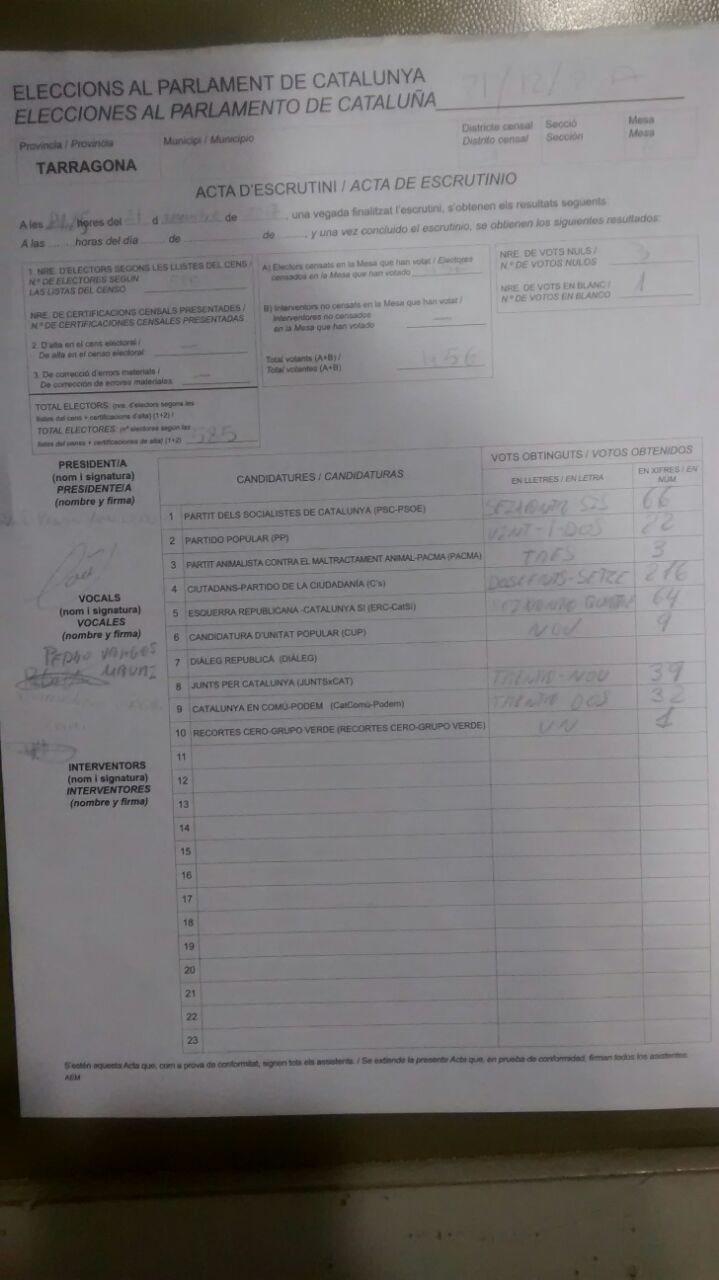 ELECCIONS AL PARLAMENT DE CATALUNYA
ELECCIONES AL PARLAMENTO DE CATALUÑA
Província / Provincia
Municipi / Municipio
Districte censal
Distrito censal
Secció
Sección
Mesa
Mesa
TARRAGONA
ACTA D'ESCRUTINI / ACTA DE ESCRUTINIO
A les hores del d de , una vegada finalitzat l'escrutini, s'obtenen els resultats següents:
A las ..... horas del día ..... de ..... de ....., y una vez concluido el escrutinio, se obtienen los siguientes resultados:
1. NRE. D'ELECTORS SEGONS LES LLISTES DEL CENS /
N.º DE ELECTORES SEGÚN
LAS LISTAS DEL CENSO
NRE. DE CERTIFICACIONS CENSALS PRESENTADES /
N.º DE CERTIFICACIONES CENSALES PRESENTADAS
2. D'alta en el cens electoral /
De alta en el censo electoral: —
3. De correcció d'errors materials /
De corrección de errores materiales: —
TOTAL ELECTORS: (nre. d'electors segons les
llistes del cens + certificacions d'alta) (1+2) /
TOTAL ELECTORES: (nº electores según las
listas del censo + certificaciones de alta) (1+2) 585
A) Electors censats en la Mesa que han votat / Electores
censados en la Mesa que han votado
B) Interventors no censats en la Mesa que han votat /
Interventores no censados
en la Mesa que han votado —
Total votants (A+B) /
Total votantes (A+B) 456
NRE. DE VOTS NULS /
N.º DE VOTOS NULOS 3
NRE. DE VOTS EN BLANC /
N.º DE VOTOS EN BLANCO 1
PRESIDENT/A
(nom i signatura)
PRESIDENTE/A
(nombre y firma)
VOCALS
(nom i signatura)
VOCALES
(nombre y firma)
PEDRO VARGES
INTERVENTORS
(nom i signatura)
INTERVENTORES
(nombre y firma)
CANDIDATURES / CANDIDATURAS
VOTS OBTINGUTS / VOTOS OBTENIDOS
EN LLETRES / EN LETRA
EN XIFRES / EN NÚM
1 PARTIT DELS SOCIALISTES DE CATALUNYA (PSC-PSOE) SEIXANTA SIS 66
2 PARTIDO POPULAR (PP) VINT-I-DOS 22
3 PARTIT ANIMALISTA CONTRA EL MALTRACTAMENT ANIMAL-PACMA (PACMA) TRES 3
4 CIUTADANS-PARTIDO DE LA CIUDADANÍA (C's) DOSCENTS-SETZE 216
5 ESQUERRA REPUBLICANA -CATALUNYA SÍ (ERC-CatSí) SEIXANTA QUATRE 64
6 CANDIDATURA D'UNITAT POPULAR (CUP) NOU 9
7 DIÀLEG REPUBLICÀ (DIÀLEG)
8 JUNTS PER CATALUNYA (JUNTSxCAT) TRENTA-NOU 39
9 CATALUNYA EN COMÚ-PODEM (CatComú-Podem) TRENTA DOS 32
10 RECORTES CERO-GRUPO VERDE (RECORTES CERO-GRUPO VERDE) UN 1
11
12
13
14
15
16
17
18
19
20
21
22
23
S'estén aquesta Acta que, com a prova de conformitat, signen tots els assistents. / Se extiende la presente Acta que, en prueba de conformidad, firman todos los asistentes.
AEM